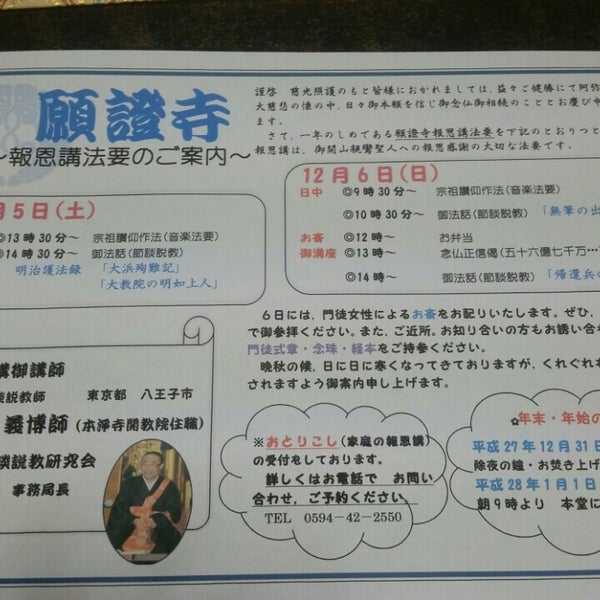 願證寺
～報恩講法要のご案内～
謹啓 慈光照護のもと皆様におかれましては、益々ご健勝にて阿弥
大慈悲の懐の中、日々御本願を信じ御念仏御相続のこととお慶び申
ます。
さて、一年のしめである願證寺報恩講法要を下記のとおりつと
報恩講は、御開山親鸞聖人への報恩感謝の大切な法要です。
月5日(土)
◎13時30分～ 宗祖讃仰作法(音楽法要)
◎14時30分～ 御法話(節談説教)
明治護法録 「大浜殉難記」
「大教院の明如上人」
12月6日(日)
日中 ◎9時30分～ 宗祖讃仰作法(音楽法要)
◎10時30分～ 御法話(節談説教) 「無筆の出
お斎 ◎12時～ お弁当
御満座 ◎13時～ 念仏正信偈(五十六億七千万…
◎14時～ 御法話(節談説教) 「帰還兵の
6日には、門徒女性によるお斎をお配りいたします。ぜひ、
で御参拝ください。また、ご近所。お知り合いの方もお誘い合
門徒式章・念珠・経本をご持参ください。
晩秋の候、日に日に寒くなってきておりますが、くれぐれ
されますよう御案内申し上げます。
講御講師
談説教師 東京都 八王子市
義博師(本淨寺開教院住職)
談説教研究会
事務局長
※おとりこし(家庭の報恩講)
の受付をしております。
詳しくはお電話で お問い
合わせ、ご予約ください。
TEL 0594-42-2550
✿年末・年始の
平成27年12月31日
除夜の鐘・お焚き上げ
平成28年1月1日
朝9時より 本堂に